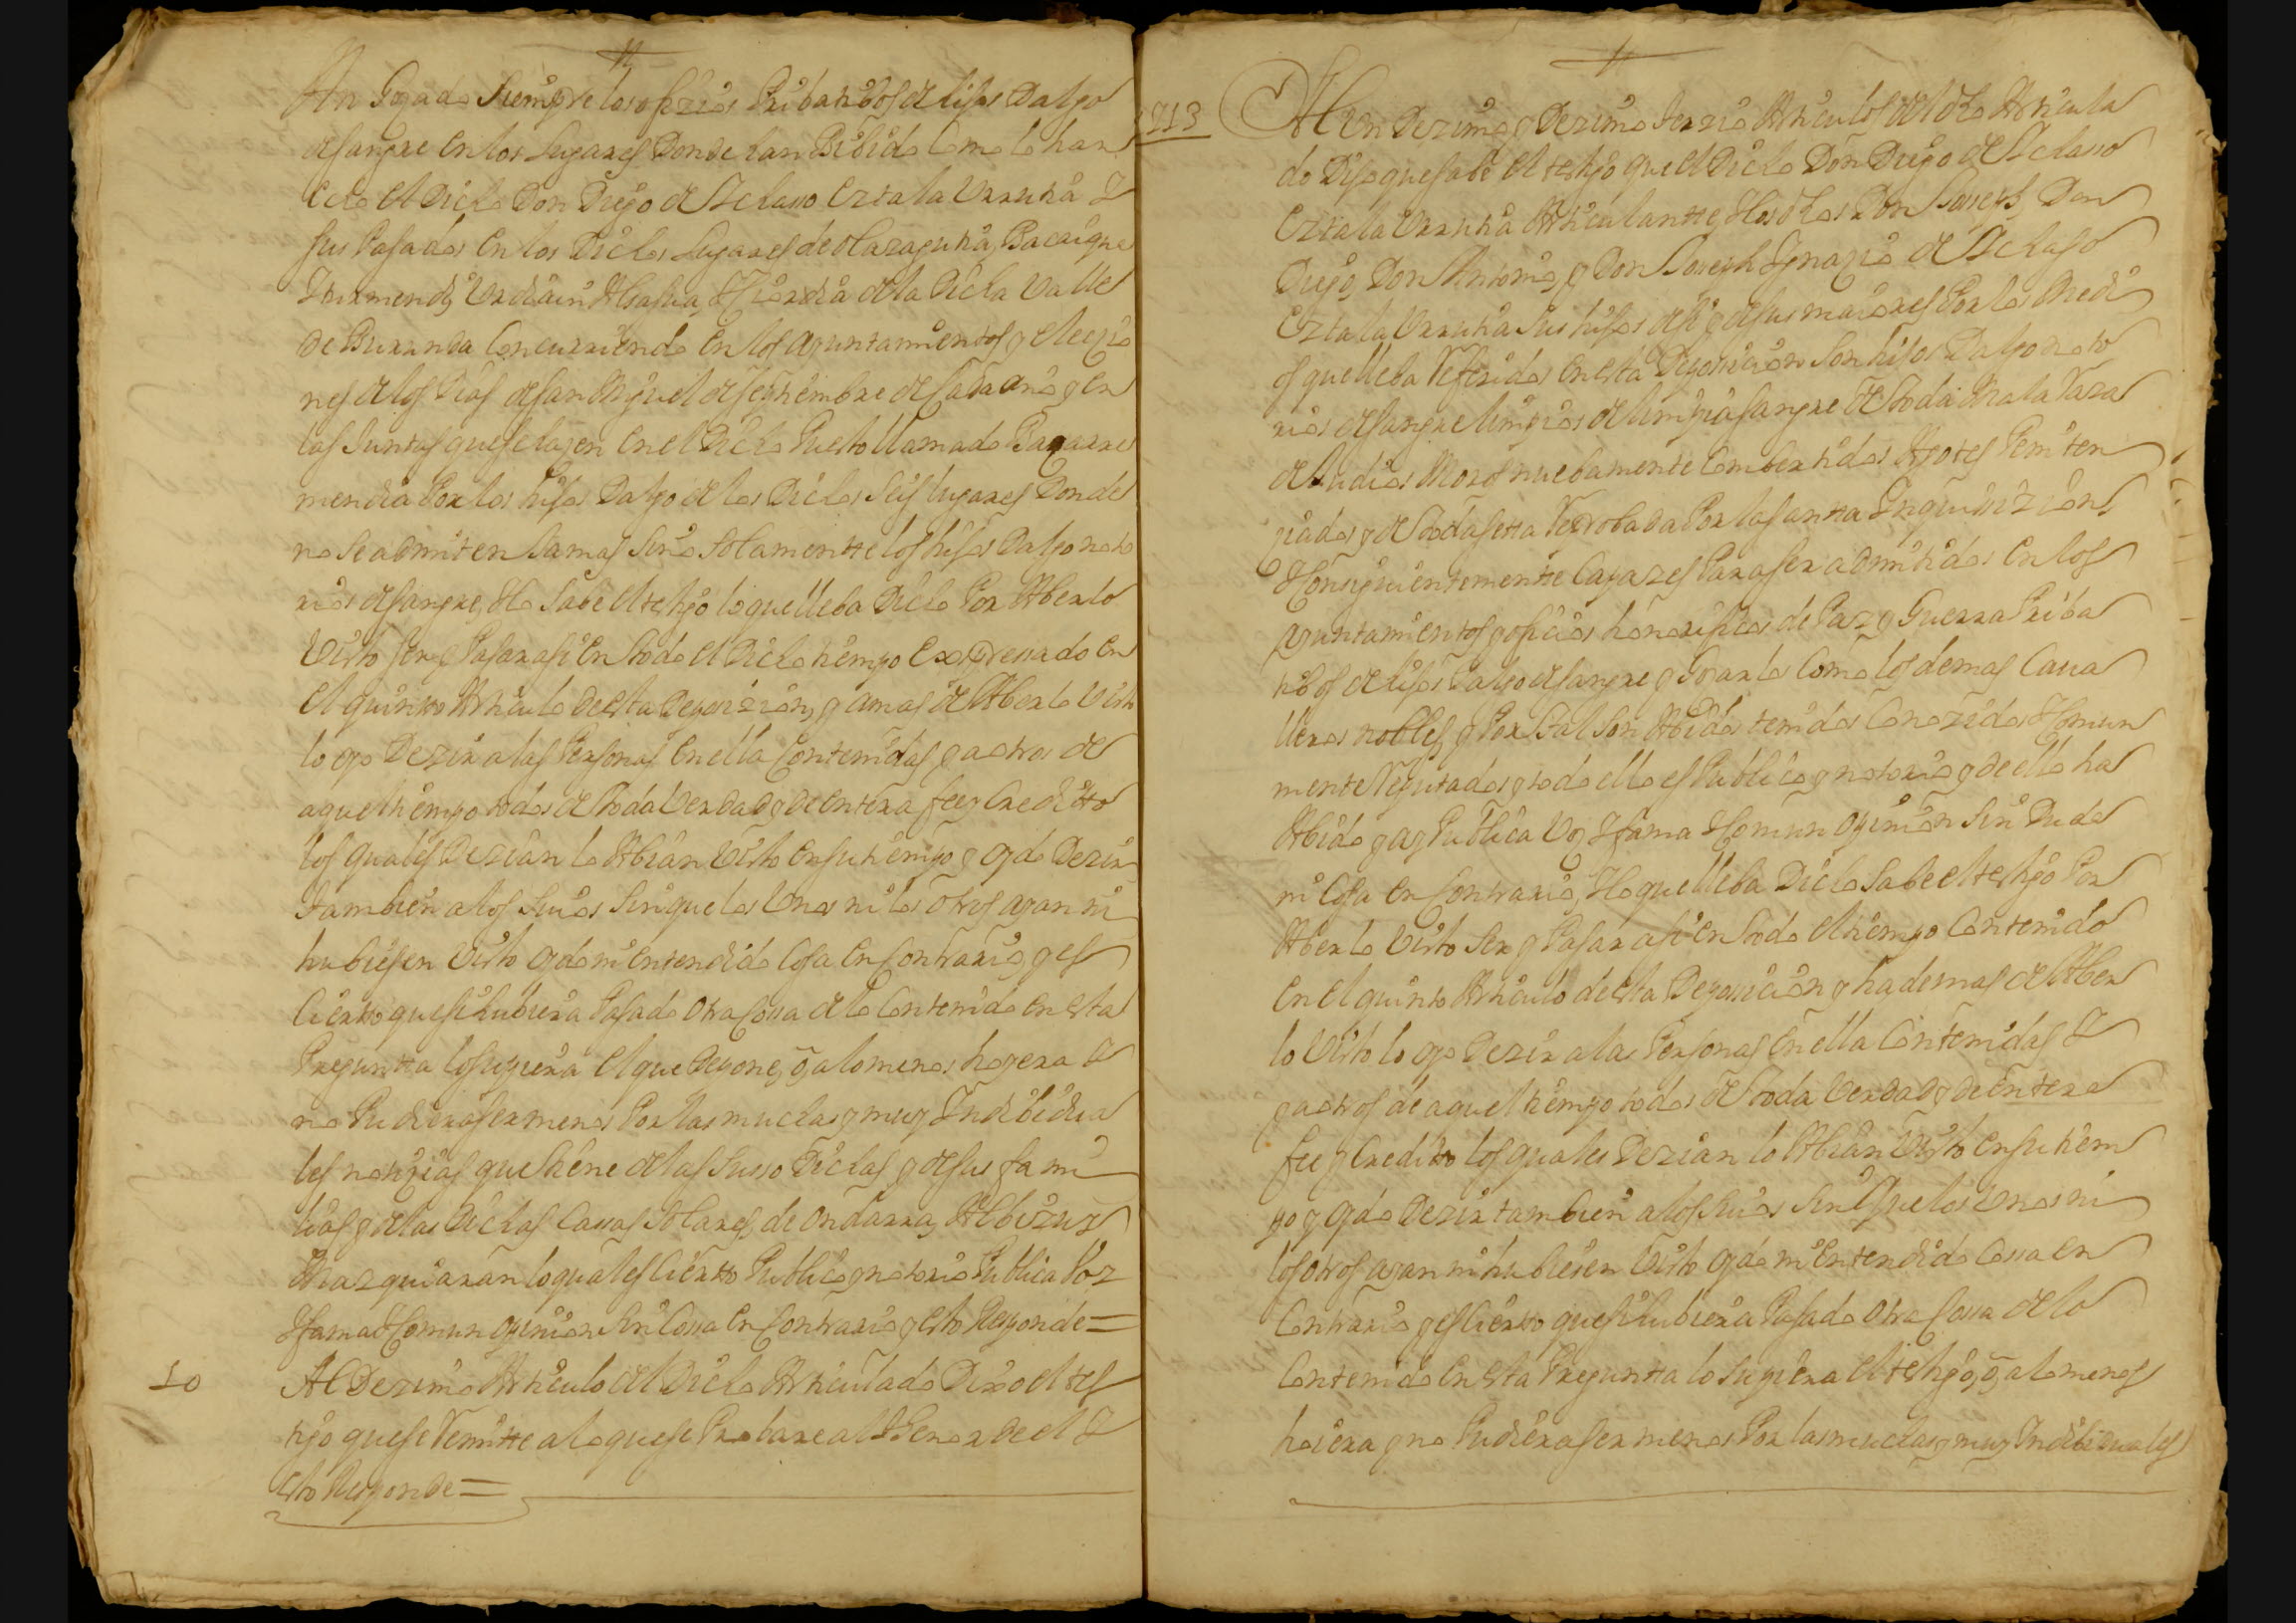 An Gozado Siempre los ofizios Pribatibos de hijos Dalgo
de sangre en los lugares Donde han Bibido Como lo han
echo el Dicho Don Diego de
sus Pasados en los Dichos Lugares de olazagutia, Bacaigua
Iturmendi, Urdiain Alsasua, y Ziordia de la Dicha Valle
de Burunda Concurriendo en los ayuntamientos y elezio
nes de los Dias de san Miguel de septiembre de cada año y en
las Juntas que se hazen en el Dicho Puesto llamado
mendia Por los hijos Dalgo de los Dichos Seis lugares Donde
no se admiten Jamas sino solamentte los hijos Dalgo noto
rios de sangre, y lo sabe el testigo lo que lleba Dicho Por Aberlo
Visto ser y Pasar asi en todo el Dicho tiempo expressado en
el quintto Articulo desta Deposizion, y amas de Aberlo Visto
lo oyo Dezir a las Personas en ella Contenidas y a otros de
aquel tiempo todos de toda Verdad y de entera fee y Creditto
los quales Dezian lo Abian Visto en su tiempo y oydo Dezir
tambien a los suios sin que los Unos ni los otros ayan ni
hubiesen Visto oydo ni entendido Cosa en Contrario, y es
Ciertto que si hubiera Pasado otra Cossa de lo Contenido en esta
Pregunta lo supiera el que Depone, o a lo menos hoyera
no Pudiera ser menos Por las muchas y muy Indibidua
les notizias que tiene de las susso Dichas y de sus fami
lias y de las Dichas Cassas Solares, de ondarra, Albizu y
lo qual es Ciertto Publico y notorio Publica Voz
y fama y Comun opinion sin Cossa en Contrario y esto Responde=
10 Al Dezimo Articulo del Dicho Articulado Dixo el tes
tigo que se Remitte a lo que se Probare al thenor de el
esto Responde=
Al Undezimo y Dezimo terzio Articulos del dho Articula
do Dijo que sabe el testigo que el Dicho Don Diego de
Articulante, y los dhos Don Joseph, Don
Diego, Don Antonio, y Don Joseph Ignazio de
sus hijos de si y de sus maiores Por los Medi
os que lleba Referidos en esta Deposicion son hijos Dalgo noto
rios de sangre limpios de limpia sangre de toda Mala Raza
de Judios Moros nuebamente Combertidos Agotes Peniten
ziados y de toda setta Reprobada Por la santta Inquisizion
y Consiguientementte Capazes Para ser admitidos en los
ayuntamientos y oficios honorificos de Paz y Guerra Priba
tibos de hijos Dalgo de sangre y Gozarlos Como los demas Caua
lleros nobles, y Por tal son Abidos tenidos Conozidos y Comun
mente Reputados y todo ello es Publico y notorio y de ello ha
Abido y ay Publica Voz y fama y Comun opinion sin Duda
ni Cosa en Contrario, y lo que lleba Dicho sabe el testigo Por
Aberlo Visto ser y Pasar asi en todo el tiempo Contenido
en el quinto Articulo de esta Deposicion y hademas de Aber
lo Visto lo oyo Dezir a las Personas en ella Contenidas
y a otros de aquel tiempo todos de toda Verdad y de entera
fee y Creditto los quales Dezian lo Abian Visto en su tiem
po y oydo Dezir tambien a los suios sin que los Unos ni
los otros ayan ni hubiesen Visto oydo ni entendido Cossa en
Contrario y es Ciertto que si hubiera Pasado otra Cossa de lo
Contenido en esta Pregunta lo supiera el testigo, o a lo menos
hoiera y no Pudiera ser menos Por las muchas y muy Indibiduales